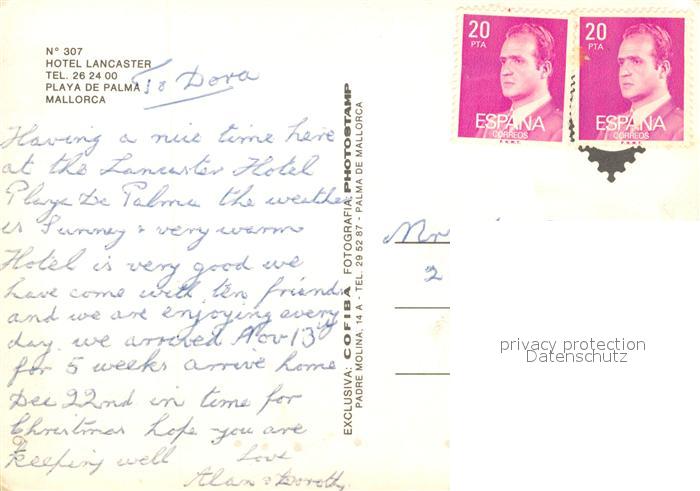 Nº 307
HOTEL LANCASTER
TEL. 26 24 00
PLAYA DE PALMA
MALLORCA
To Dora
Having a nice time here
at the Lancaster Hotel
Playa De Palma the weather
is Sunney & very warm
Hotel is very good we
have come with ten friends
and we are enjoying every
day. we arrived Nov 13
for 5 weeks arrive home
Dec 22nd in time for
Christmas hope you are
keeping well Love
Alan & Dorothy.
EXCLUSIVA: COFIBA FOTOGRAFIA: PHOTOSTAMP
PADRE MOLINA, 14 A - TEL. 29 52 87 - PALMA DE MALLORCA
20
PTA
ESPAÑA
CORREOS
F.N.M.T.
20
PTA
ESPAÑA
CORREOS
F.N.M.T.
Mr
2
privacy protection
Datenschutz